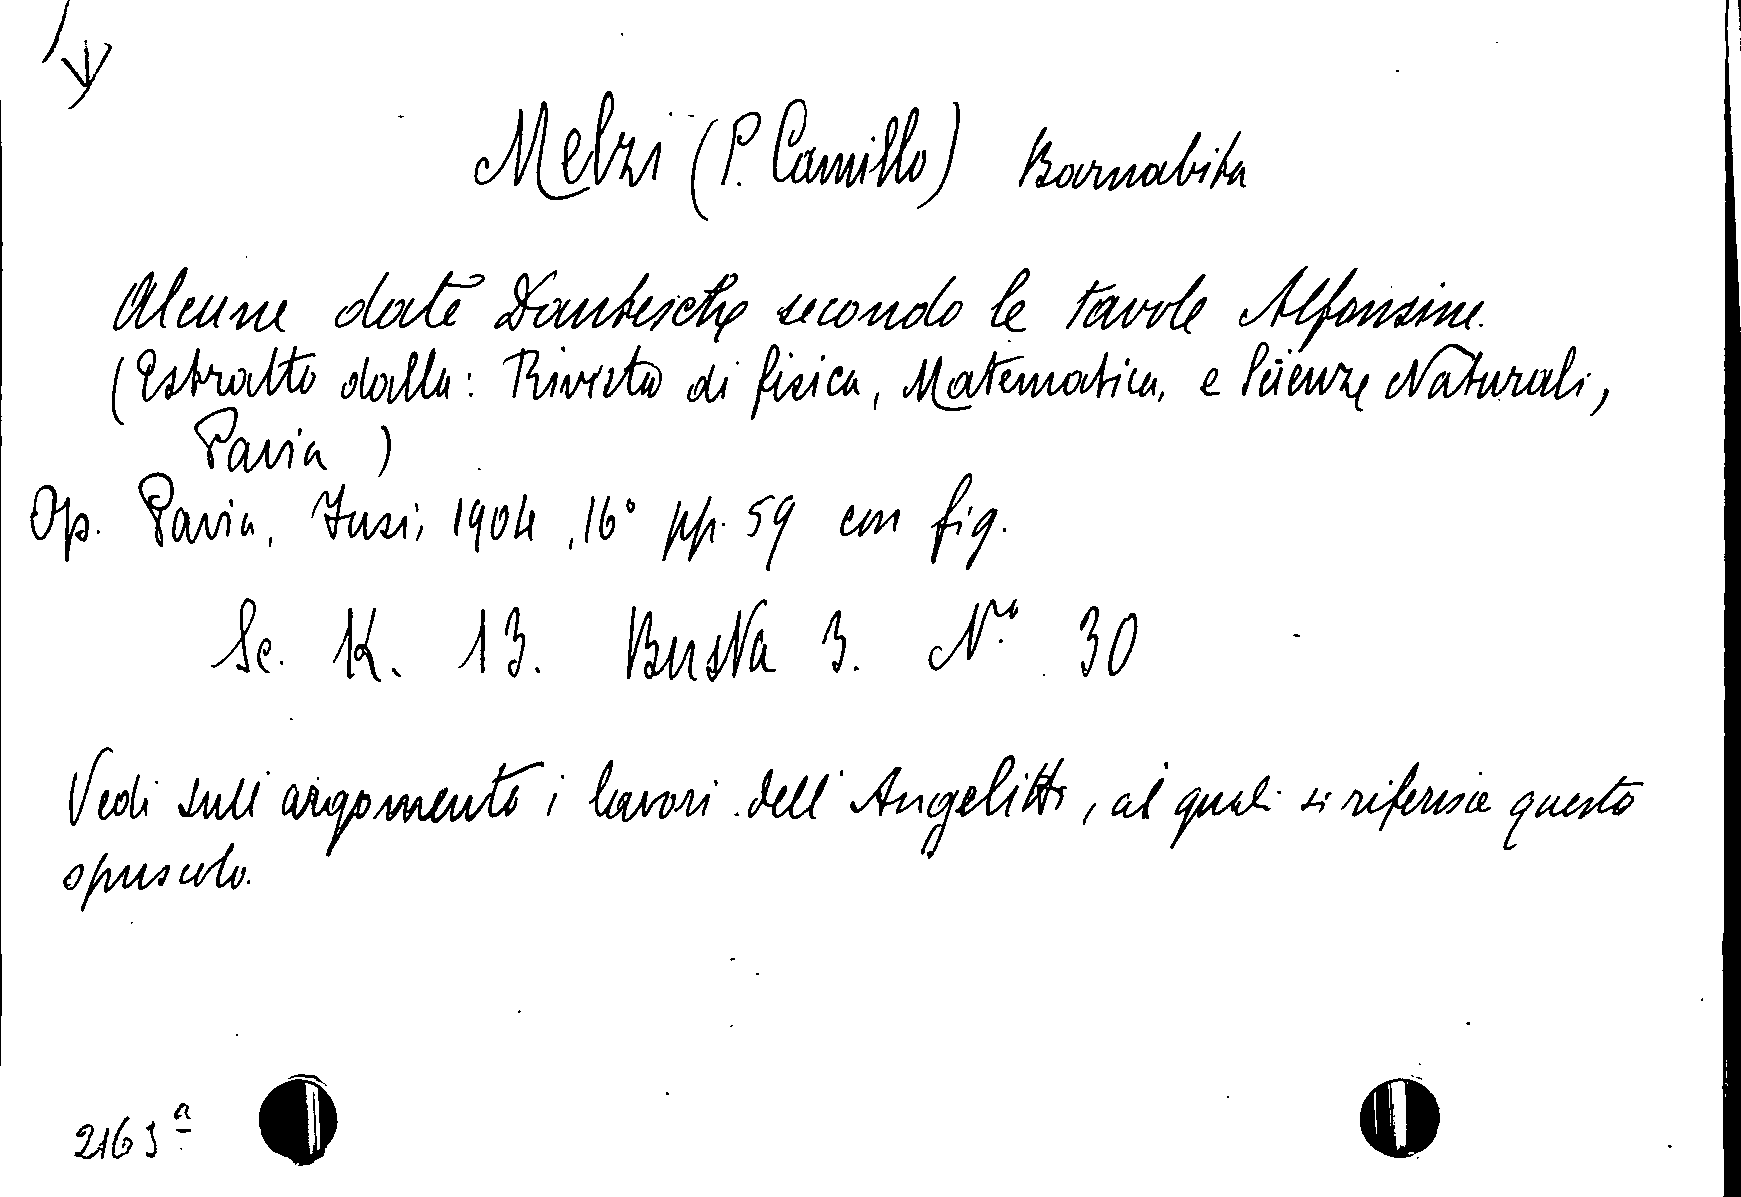 Melzi (P. Camillo) Barnabita
Alcune date Dantesche secondo le tavole Alfonsine.
(Estratto dalla: Rivista di fisica, Matematica, e Scienze Naturali,
Pavia )
Op. Pavia, Fusi, 1904, 16° pp. 59 con fig.
Sc. K. 13. Busta 3. N.° 30
Vedi sull'argomento i lavori dell'Angelitti, ai quali si riferisce questo
opuscolo.
2163 a